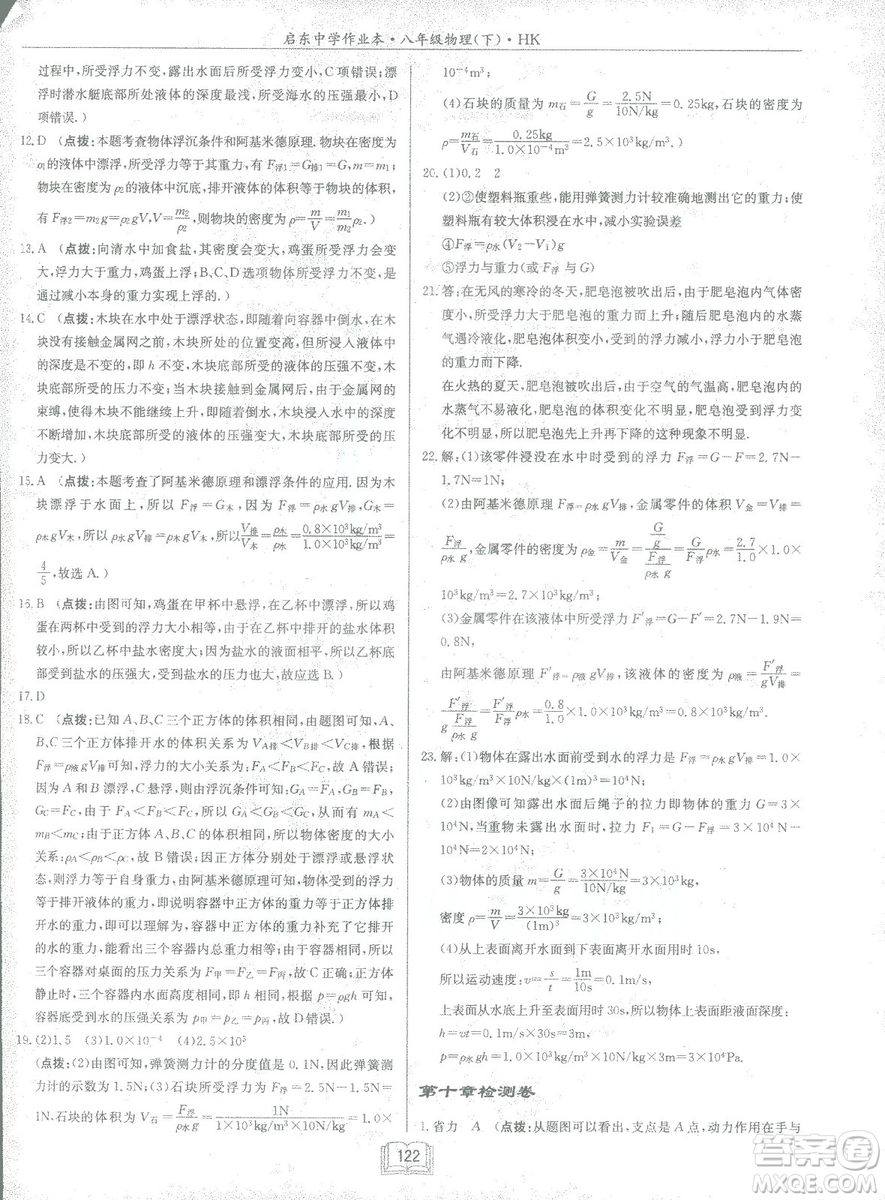 启东中学作业本·八年级物理(下)·HK
过程中,所受浮力不变,露出水面后所受浮力变小,C项错误;漂
浮时潜水艇底部所处液体的深度最浅,所受海水的压强最小,D
项错误.)
12.D (点拨:本题考查物体浮沉条件和阿基米德原理.物块在密度为
ρ1的液体中漂浮,所受浮力等于其重力,有F浮1=G,m=m1;物块
在密度为ρ2的液体中沉底,排开液体的体积等于物块的体积,
有F浮2=m2g=ρ2gV,V=m2/ρ2,则物块的密度为ρ=m/V=m1/m2·ρ2.)
13.A (点拨:向清水中加食盐,其密度会变大,鸡蛋所受浮力会变
大,浮力大于重力,鸡蛋上浮;B、C、D选项物体所受浮力不变,是
通过减小本身的重力实现上浮的.)
14.C (点拨:木块在水中处于漂浮状态,即随着向容器中倒水,在
木块没有接触金属网之前,木块所处的位置变高,但木块在液体
中的深度是不变的,即h不变,木块底部所受的液体的压强不变,
木块底部所受的压力不变;当木块接触到金属网后,由于金属网的
束缚,使得木块不能继续上升,随着倒水,木块浸入水中的深度
不断增加,木块底部所受的液体的压强不断变大,木块底部的
压力变大.)
15.A (点拨:本题考查了阿基米德原理和漂浮条件的应用.因为木
块漂浮于水面上,所以F浮=G木,因为F浮=ρ水gV排,G木=
ρ木gV木,所以ρ水gV排=ρ木gV木,所以V排/V木=ρ木/ρ水=0.8×10³kg/m³/1.0×10³kg/m³=
4/5,故选A.)
16.B (点拨:由图可知,鸡蛋在甲杯中悬浮,在乙杯中漂浮,所以鸡
蛋在两杯中所受的浮力大小相等,在乙杯中排开的盐水体积
较小,所以乙杯中盐水的密度大,盐水的液面相平,所以乙杯底
部受到盐水的压强大,压力也大,故应选B.)
17.D
18.C (点拨:已知A、B、C三个正方体的体积相同,由题图可知,A、
B、C三个正方体排开水的体积关系为VA排<VB排<VC排,根据
F浮=ρ液gV排可知,浮力的大小关系为FA<FB<FC,故A错误;
因为A和B漂浮,C悬浮,则由浮沉条件可知:GA=FA,GB=FB,
GC=FC,由于FA<FB<FC,所以GA<GB<GC,所以有mA<
mB<mC;由于正方体A、B、C的体积相同,所以物体密度的大小
关系:ρA<ρB<ρC,故B错误;因正方体分别处于漂浮或悬浮状
态,则浮力等于自身重力,由阿基米德原理可知,浮力等于排开
液体受到的重力,即说明容器中正方体的重力等于正方体排
开水的重力,即可以理解为,容器中正方体的重力补充了它排开
水的重力,能看出三个容器内总重力相等;由于容器相同,所以三
个容器对桌面的压力关系为F甲=F乙=F丙,故C正确;正方体
静止时,三个容器内水面高度相同,即h相同,根据p=ρgh可知,
容器底部受到水的压强关系为p甲=p乙=p丙,故D错误.)
19.(2)1.5 (3)1.0×10⁻⁴ (4)2.5×10³
(点拨:(2)由图可知,弹簧测力计的分度值是0.1N,弹簧测力
计的示数为1.5N;(3)石块所受的浮力为F浮=2.5N-1.5N=
1N,石块的体积为V石=F浮/ρ水g=1N/1×10³kg/m³×10N/kg=1.0×
10⁻⁴m³;
(4)石块的质量为m石=G/g=2.5N/10N/kg=0.25kg,石块的密度为
ρ石=m石/V石=0.25kg/1.0×10⁻⁴m³=2.5×10³kg/m³)
20.(1)0.2 2
(2)②使塑料瓶重些,能用弹簧测力计较准确地测出它的重力;使
塑料瓶有较大体积浸在水中,减小实验误差
④F浮=ρ水(V2-V1)g
⑤浮力与重力(或F浮与G)
21.答:在无风的寒冷的冬天,肥皂泡被吹出后,由于肥皂泡内气体密
度小,所受浮力大于肥皂泡的重力而上升;肥皂泡内的水蒸
气遇冷液化,肥皂泡的体积变小,浮力变小,浮力小于肥皂泡的
重力而下降.
在火热的夏天,肥皂泡被吹出后,由于空气的气温高,肥皂泡内的
水蒸气不易液化,肥皂泡的体积变化不明显,肥皂泡受到的浮力变
化不明显,所以肥皂泡先上升后下降的这种现象不明显.
22.解:(1)该零件浸没在水中时受到的浮力F浮=G-F=2.7N-
1.7N=1N;
(2)由阿基米德原理F浮=ρ水gV排得,金属零件的体积V金=V排=
F浮/ρ水g,金属零件的密度为ρ金=m/V金=G/g/F浮/ρ水g=G/F浮ρ水=2.7/1×1.0×
10³kg/m³=2.7×10³kg/m³;
(3)金属零件在该液体中所受浮力F′浮=G-F′=2.7N-1.9N=
0.8N,
由阿基米德原理F′浮=ρ液gV排得,该液体的密度为ρ液=F′浮/gV排=
F′浮/F浮/ρ水=F′浮/F浮ρ水=0.8/1.0×1.0×10³kg/m³=0.8×10³kg/m³
23.解:(1)物体在露出水面前受到水的浮力是F浮=ρ水gV排=1.0×
10³kg/m³×10N/kg×(1m)³=10⁴N;
(2)由图像可知露出水面后绳子的拉力即物体的重力G=3×
10⁴N;当重物未露出水面时,拉力F1=G-F浮=3×10⁴N-10⁴N
=2×10⁴N;
(3)物体的质量m=G/g=3×10⁴N/10N/kg=3×10³kg,
密度ρ=m/V=3×10³kg/(1m)³=3×10³kg/m³;
(4)从上表面离开水面到下表面离开水面用时10s,
所以运动速度v=s/t=1m/10s=0.1m/s,
上表面从水底上升至水面历时30s,所以物体上表面距液面深度
h=vt=0.1m/s×30s=3m,
p=ρ水gh=1.0×10³kg/m³×10N/kg×3m=3×10⁴Pa.
第十章检测卷
1.省力 A (点拨:从题图可以看出,支点是A点,动力作用在手与
122
答案圈
MXQE.COM